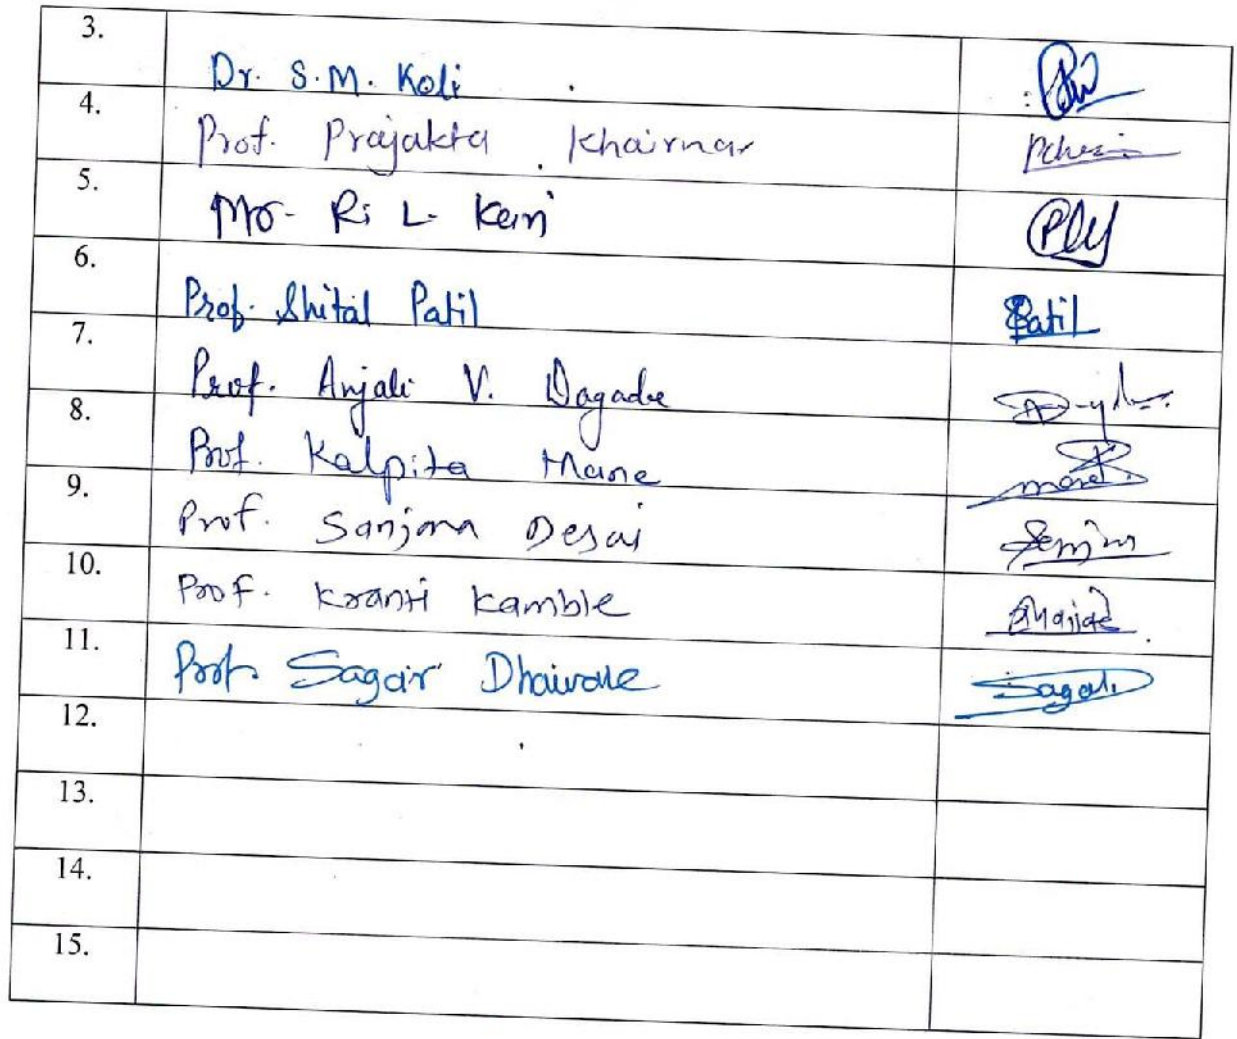 3. Dr. S.M. Koli
4. Prof. Prajakta Khairnar
5. Mr. R. L.
6. Prof. Shital Patil Patil
7. Prof. Anjali V. Dagade
8. Prof. Kalpita Mane
9. Prof. Sanjana Desai
10. Prof. Kranti Kamble
11. Prof. Sagar Dhaivale Sagar
12.
13.
14.
15.